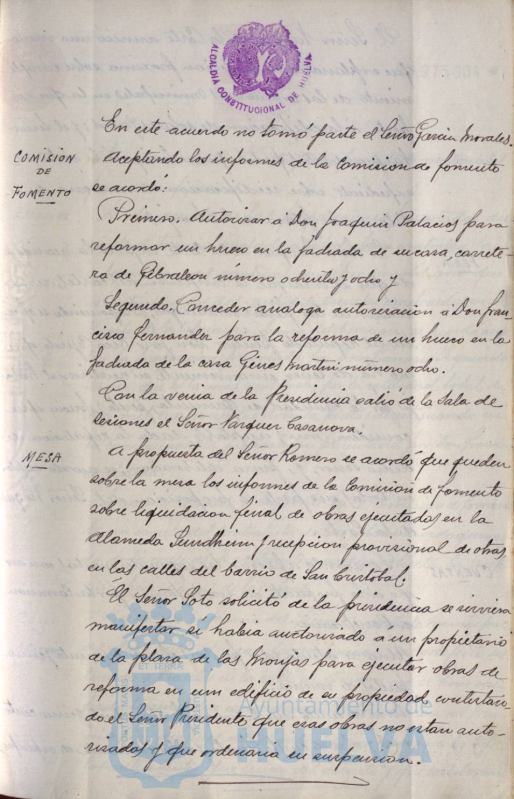 ALCALDIA CONSTITUCIONAL DE HUELVA
En este acuerdo no tomó parte el Señor Garcia Morales.
COMISION
DE
FOMENTO
Aceptando los informes de la Comision de fomento
se acordó:
Primero. Autorizar á Don Joaquin Palacios para
reformar un hueco en la fachada de su casa, carrete-
ra de Gibraleon número ochenta y ocho y
Segundo. Conceder analoga autorizacion á Don Fran-
cisco Fernandez para la reforma de un hueco en la
fachada de la casa Gines Martin número ocho.
Con la venia de la Presidencia salió de la Sala de
Sesiones el Señor Vazquez Casanova.
MESA
A propuesta del Señor Romero se acordó que queden
sobre la mesa los informes de la Comision de fomento
sobre liquidacion final de obras ejecutadas en la
Alameda Sundheim y recepcion provisional de otras
en las calles del barrio de San Cristobal.
El Señor Soto solicitó de la presidencia se sirviera
manifestar si habia autorizado á un propietario
de la plaza de las Monjas para ejecutar obras de
reforma en un edificio de su propiedad, contestan-
do el Señor Presidente que esas obras no estan auto-
rizadas y que ordenaria su suspension.
Ayuntamiento de
HUELVA